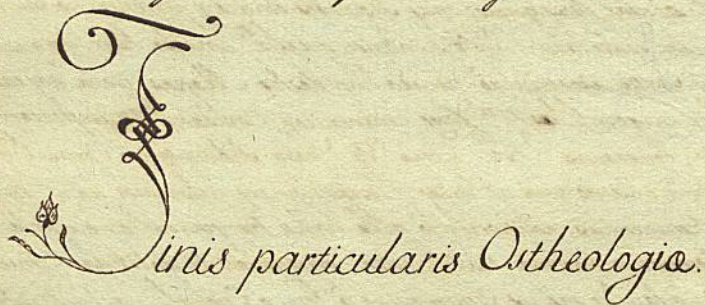 Finis particularis Ostheologiæ.